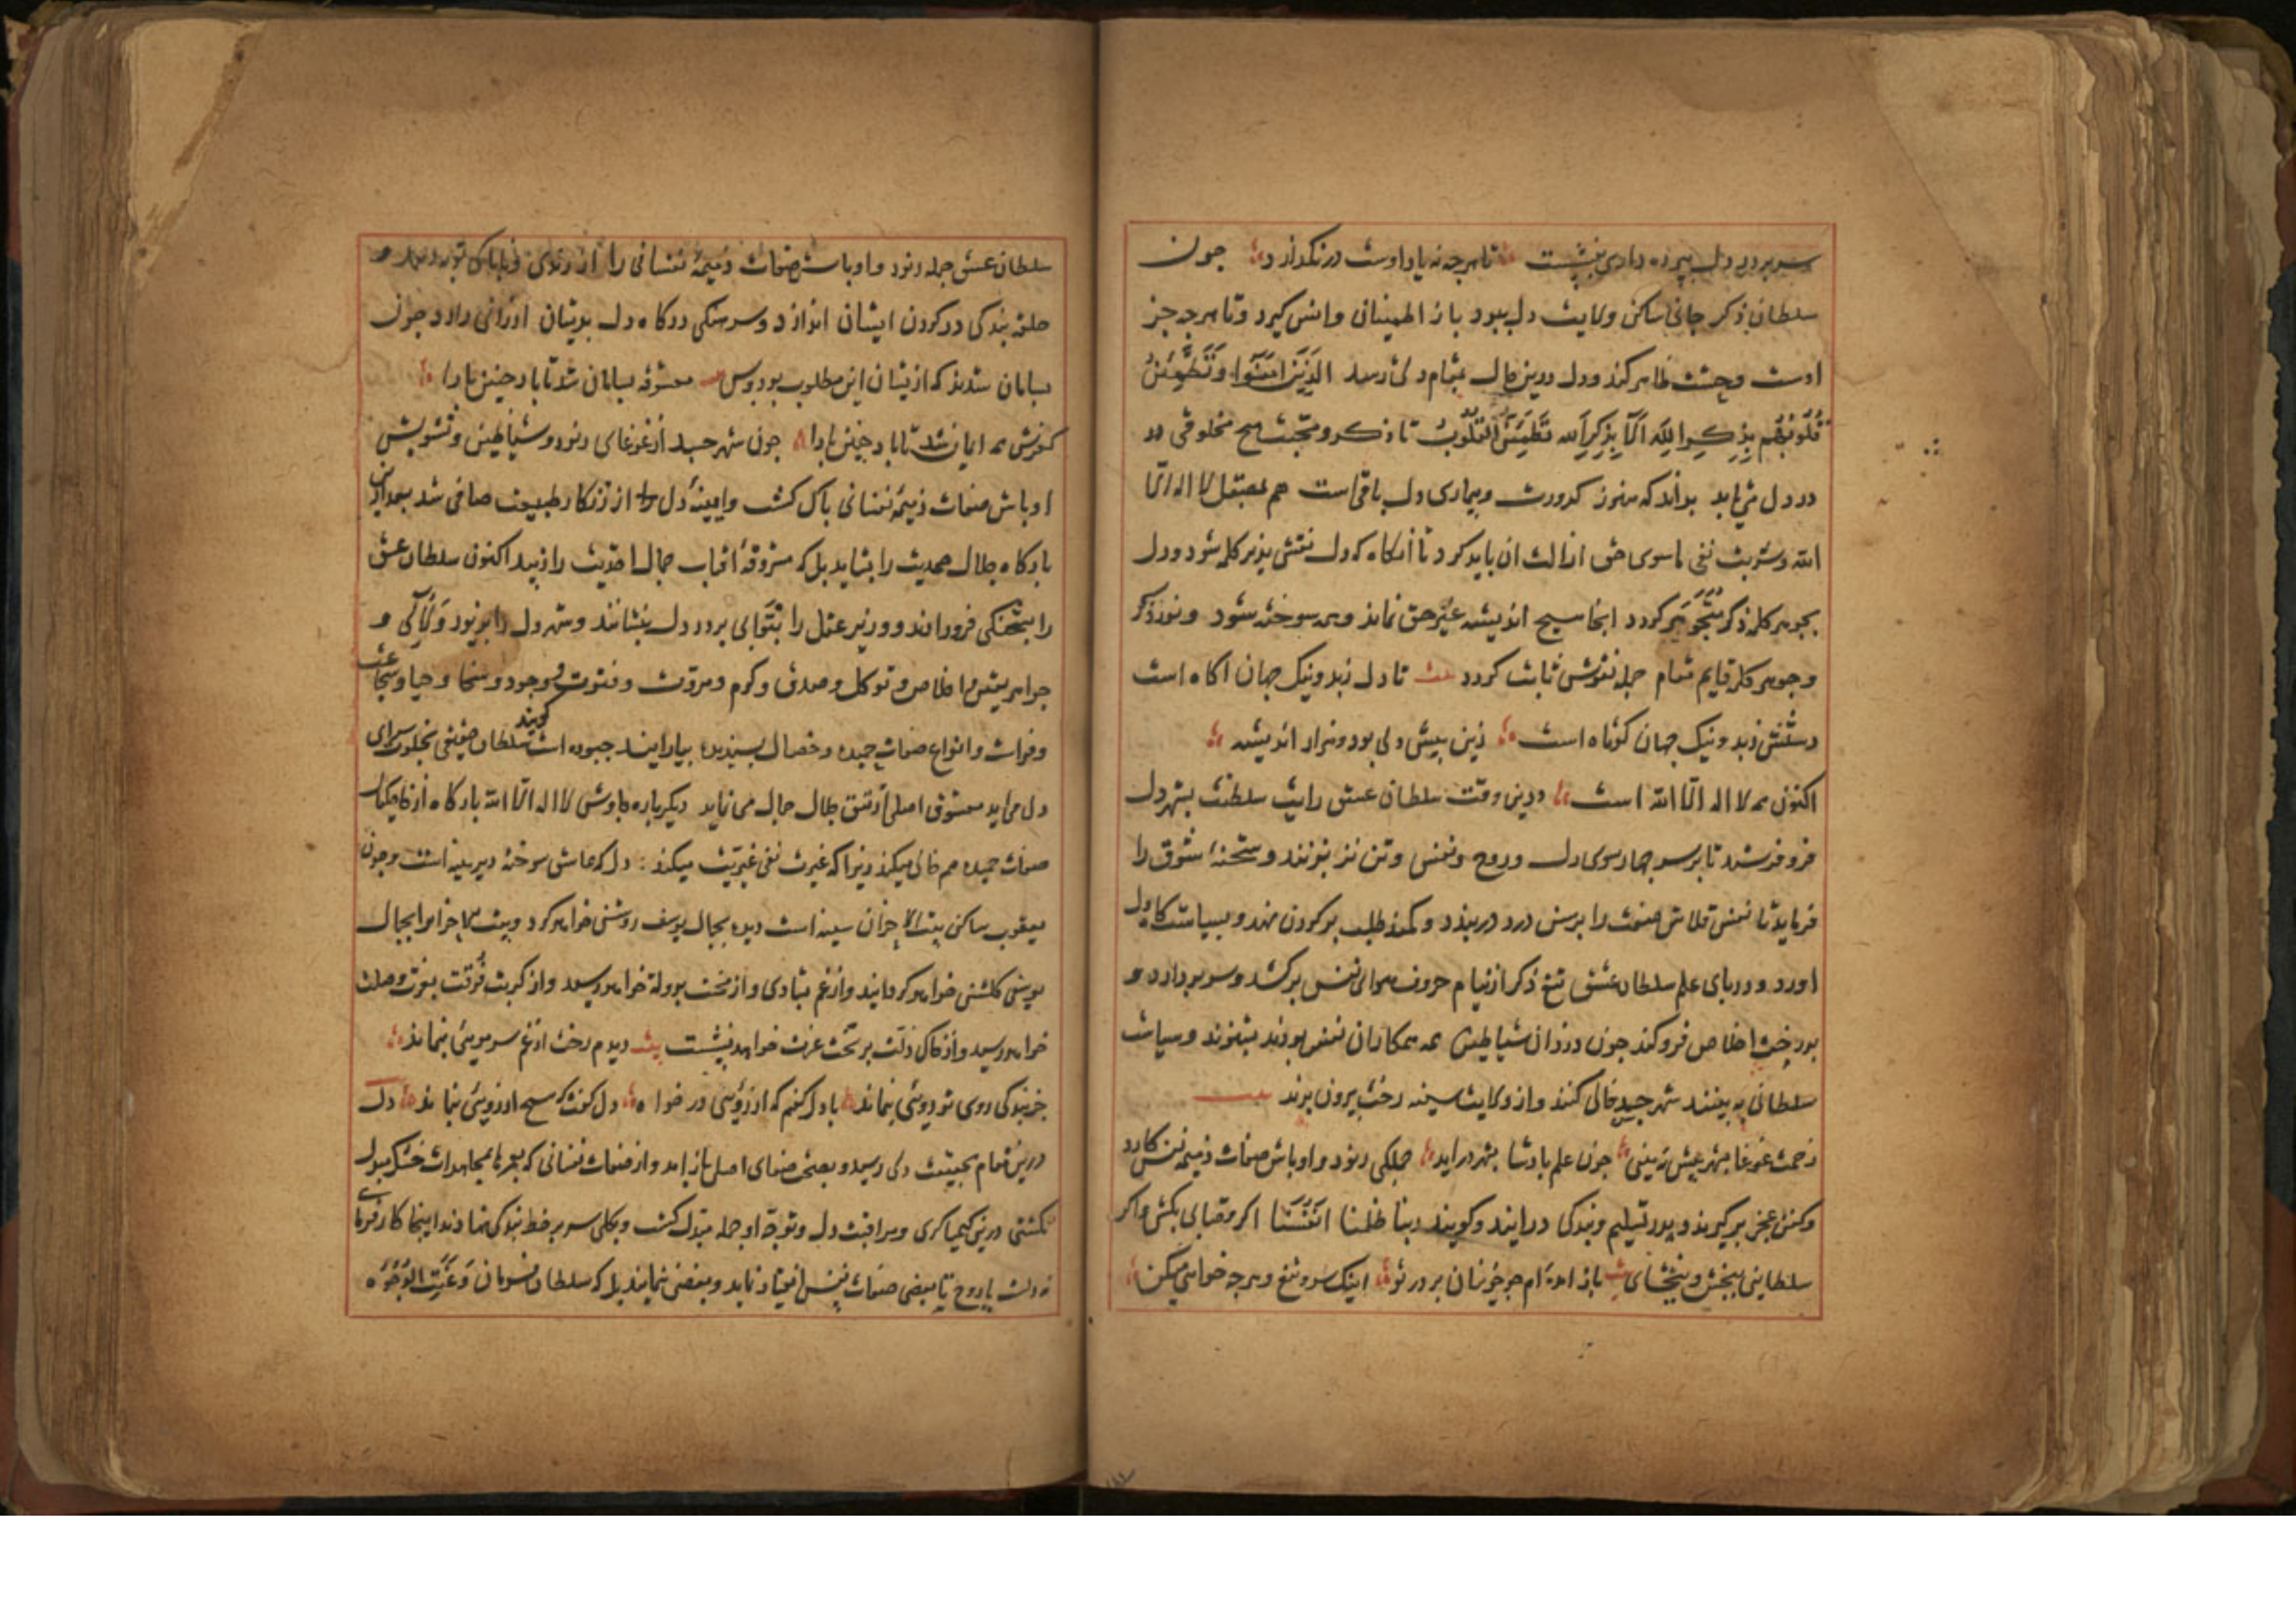 بر در دل بپرده داری بنشست تا هرچه نه یاد اوست در نگذارد چون
سلطان ذکر جانی ساکن ولایت دل بود با ز اطمینانی و انس گیرد و تا هرچه جز
اوست وحشت ظاهر کند و دل درین حال بمقام دلی رسد الَّذِینَ آمَنُوا وَتَطْمَئِنُّ
قُلُوبُهُم بِذِکرِ اللّه اَلَا بِذِکرِ اللّه تَطْمَئِنُّ الْقُلُوبُ تا ذکر و محبت هیچ مخلوقی در
در دل می یابد بداند که هنوز کدورت و بیماری دل باقی است هم بمصقل لا اله الا
الله و شربت نفی ماسوی حق ازالت ان باید کرد تا انکاه که دل نقش پذیر کلمه شود و دل
بجوهر کلمه ذکر مُتَجَوهَر کردد اینجا هیچ اندیشه غیر حق نماند و همه سوخته شود و نور ذکر
و جوهر کلمه قایم مقام جمله نقوش ثابت کردد بیت تا دل زبد و نیک جهان اکاه است
دستش زبد و نیک جهان کوتاه است زین پیش دلی بود و هزار اندیشه
اکنون همه لا اله الا الله است درین وقت سلطان عشق رایت سلطنت بشهر دل
فرو فرستد تا بر سر چهار سوی دل و روح و نفس و تن بزنند و شحنهٔ شوق را
فرماید تا نفس قلاش صفت را برسن درد بربندد و کمند طلب بر کردن نهد و بسیاستکاه دل
اورد و در پای علم سلطان عشق تیغ ذکر از نیام حروف هوای نفس برکشد و سر بردارد و
بدرخت اخلاص فرو کند چون دزدان شیاطین همه همکاران نفس بودند بشنوند و سیاست
سلطانی ببینند شهر جسد خالی کنند و از ولایت سینه رخت بیرون برند بیت
زحمت غوغا بشهر بیش نبینی چون علم پادشا بشهر دراید جملکی رنود و اوباش صفات ذمیمه نفس کارد
و کفن عجز برکیرند و بدر تسلیم و بندکی درایند و کویند ربنا ظلمنا انفسنا اکر قصابی بکش و اکر
سلطانی ببخش و ببخشای بیت باز امده ام چو خونیان بر در تو اینک سر و تیغ و هرچه خواهی میکن
سلطان عشق جمله رنود و اوباش صفات ذمیمهٔ نفسانی را از رندی و ناپاکی توبه دهد و
حلقه بندکی در کردن ایشان اندازد و سرهنکی درکاه دل بدیشان ارزانی دارد چون
بسامان شدند که ازیشان این مطلوب بود و بس بیت معشوقه بسامان شد تا باد چنین بادا
کفرش همه ایمان شد تا باد چنین بادا چون شهر جسد از غوغای رنود و شیاطین و تشویش
اوباش صفات ذمیمهٔ نفسانی پاک کشت و ایینهٔ دل از زنکار طبیعت صافی شد بعد ازین
بارکاه جلال صمدیت را بشاید بل که مشروقهٔ افتاب جمال احدیت را زیبد اکنون سلطان عشق
را بشحنکی فرو دارند و وزیر عقل را ببوّابی بر در دل بنشانند و شهر دل را بزیور و لآلی و
جواهر یقین و اخلاص و توکل و صدق و کرم و مروّت و فتوت و جود و سخا و حیا و شجاعت
و فراست و انواع صفات حمیده و خصال پسندیده بیارایند چه بوده است کویند سلطان حقیقی بخلوت سرای
دل می اید معشوق اصلی از تتق جلال جمال می نماید دیکر باره چاوش لا اله الا الله بارکاه از خاصکیان
صفات حمیده هم خالی میکند زیرا که غیرت نفی غیریّت میکند دل که عاشق سوخته دیرینه است و چون
یعقوب ساکن بیت الاحزان سینه است دیده بجمال یوسف روشنی خواهد کرد و بیت الاحزان را بجمال
یوسفی کلشن خواهد کردانید و از غم بشادی و از محنت بدولت خواهد رسید و از کربت فُرقت بعزت وصلت
خواهد رسید و از خاک ذلّت بر تخت عزت خواهد نشست بیت دیدم رخت از غم سر مویی بنماند
جز بندکی روی تو رویی بنماند با دل کفتم که ارزویی در خواه دل کفت که هیچ ارزویی بنماند دل
درین مقام بحقیقت دلی رسد و بصحت صفای اصل باز امد و از صفات نفسانی که بعمرها بمجاهدات خشک مبدل
نکشتی درین کیمیا کری و مراقبت دل و توجّه او جمله مبدّل کشت و بکلی سر بر خط بندکی نهادند اینجا کارفرمای
نه دلست یا روح تا بعضی صفات نفس انقیاد نماید و بعضی ننماید بل که سلطان فرمان وَعَنَتِ الوُجُوه